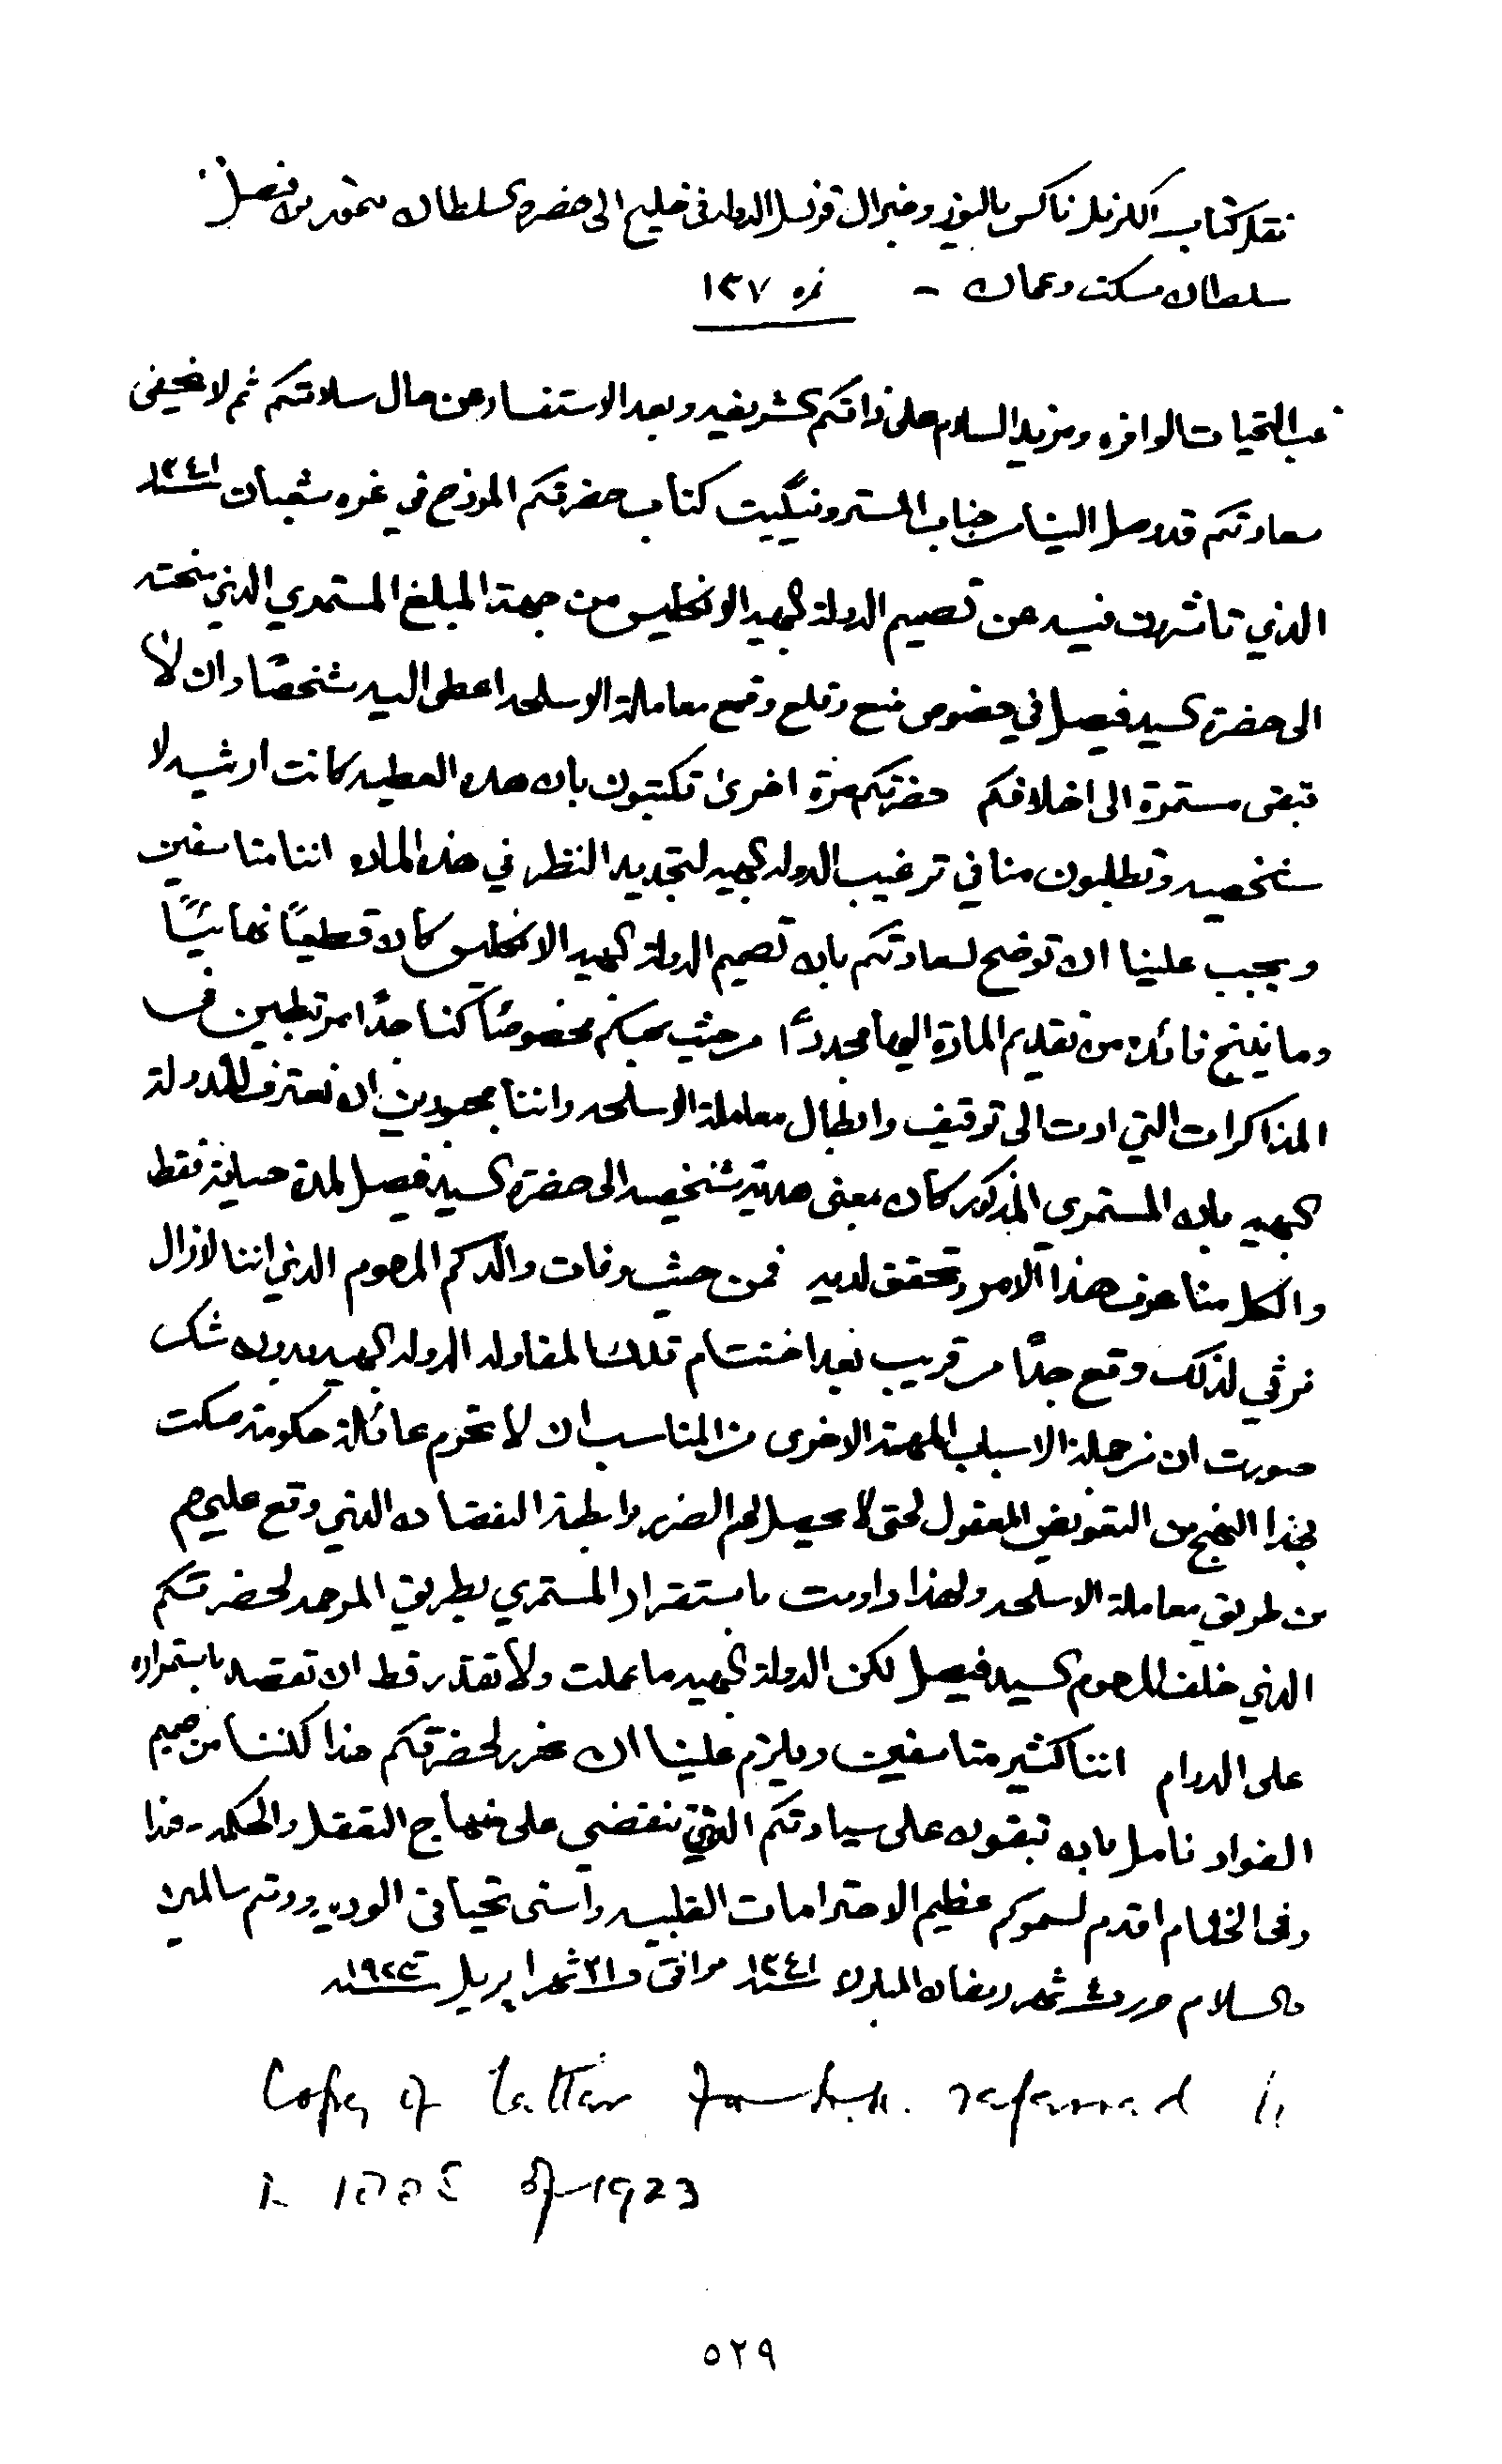 نقل كتاب الكرنل ناكس باليوز وجنرال قونسل الدوله في خليج الى حضرة السلطان تيمور بن فيصل
سلطان مسكت وعمان - نمره ١٣٧
غب التحيات الوافره ومزيد السلام على ذاتكم الشريفه وبعد الاستفسار عن حال سلامتكم ثم لا يخفى
سعادتكم قد وصل الينا من جناب المستر ونيگيت كتاب حضرتكم المورخ في غره شعبان سنه ١٣٤١
الذي تأثرت فيه عن تصميم الدولة البهيه الانكليس من جهة المبلغ المستمري الذي منحته
الى حضرة السيد فيصل في خصوص منع وقلع وقمع معاملة الاسلحه اعطى اليه شخصًا وان لا
تبقى مستمرة الى اخلافكم حضرتكم مرة اخرى تكتبون بان هذه العطيه كانت ارثيه لا
شخصيه وتطلبون منا في ترغيب الدوله البهيه لتجديد النظر في هذه الماده اننا متاسفين
ويجب علينا ان نوضح لسعادتكم بان تصميم الدولة البهيه الانكليس كان قطعيًا نهائيًا
وما ينتج فائده من تقديم المادة اليها مجددًا من حيث بخصوصًا كنا جدًا مرتبطين في
المذاكرات التي ادت الى توقيف وابطال معاملة الاسلحه واننا مجبورين ان نعترف للدولة
البهيه بان المستمري المذكور كان بمعنى هدية شخصيه الى حضرة السيد فيصل لمدة حياته فقط
والكل منا عرف هذا الامر وتحقق لديه فمن حيث وفات والدكم المرحوم الذي اننا لانزال
نرثي لذلك وقع جدًا من قريب بعد اختتام تلك المقاوله الدوله البهيه بدون شك
صورت ان من جملة الاسباب المهمة الاخرى من المناسب ان لا تحرم عائلة حكومة مسكت
بهذا النهج من التعويض المعقول لحتى لا يحصل لهم الضرر وابطة النقصان الذي وقع عليهم
من طريق معاملة الاسلحه ولهذا داومت باستقرار المستمري بطريق المرحمه لحضرتكم
الذي خلف المرحوم السيد فيصل لكن الدولة البهيه ما عملت ولا تقدر قط ان تقصد باستمراره
على الدوام اننا كثير متاسفين ويلزم علينا ان نحرر لحضرتكم هذا لكننا من صميم
الفواد نامل بان تبقون على سيادتكم نقتضي على منهاج التعقل والحكمه - هذا
وفي الختام اقدم لسموكم عظيم الاحترامات القلبيه واسنى تحياتى الوديه ودمتم سالمين
والسلام حرر في ٤ شهر رمضان المبارك سنه ١٣٤١ موافق ٢١ شهر اپريل سنه ١٩٢٣
Copy of letter referred
of 1923
٥٢٩